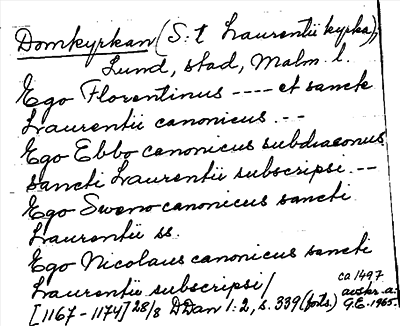 Domkyrkan (S:t Laurentii kyrka),
Lund, stad, Malm. l.
Ego Florentinus ---- et sancte
Laurentii canonicus. --
Ego Ebbo canonicus subdiaconus
sancti Laurentii subscripsi --
Ego Sweno canonicus sancti
Laurentii ss.
Ego Nicolaus canonicus sancti
Laurentii subscripsi/
ca 1497
avskr. a.
[1167 - 1174] 28/8 DDan 1:2, s. 339 (forts.) G.E. 1965.